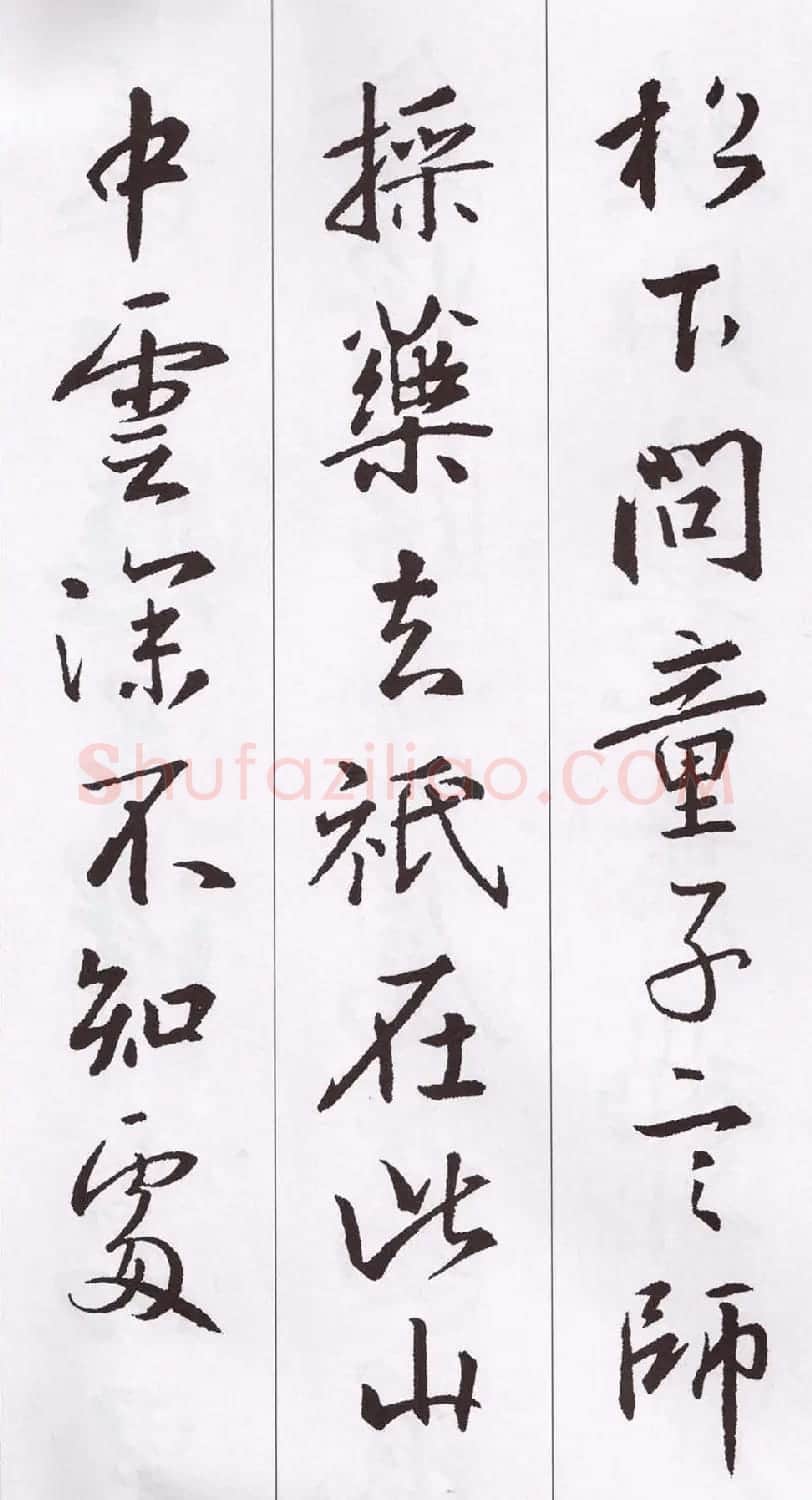 松下問童子言師
採藥去祇在此山
中雲深不知處
Shufaziliao.COM